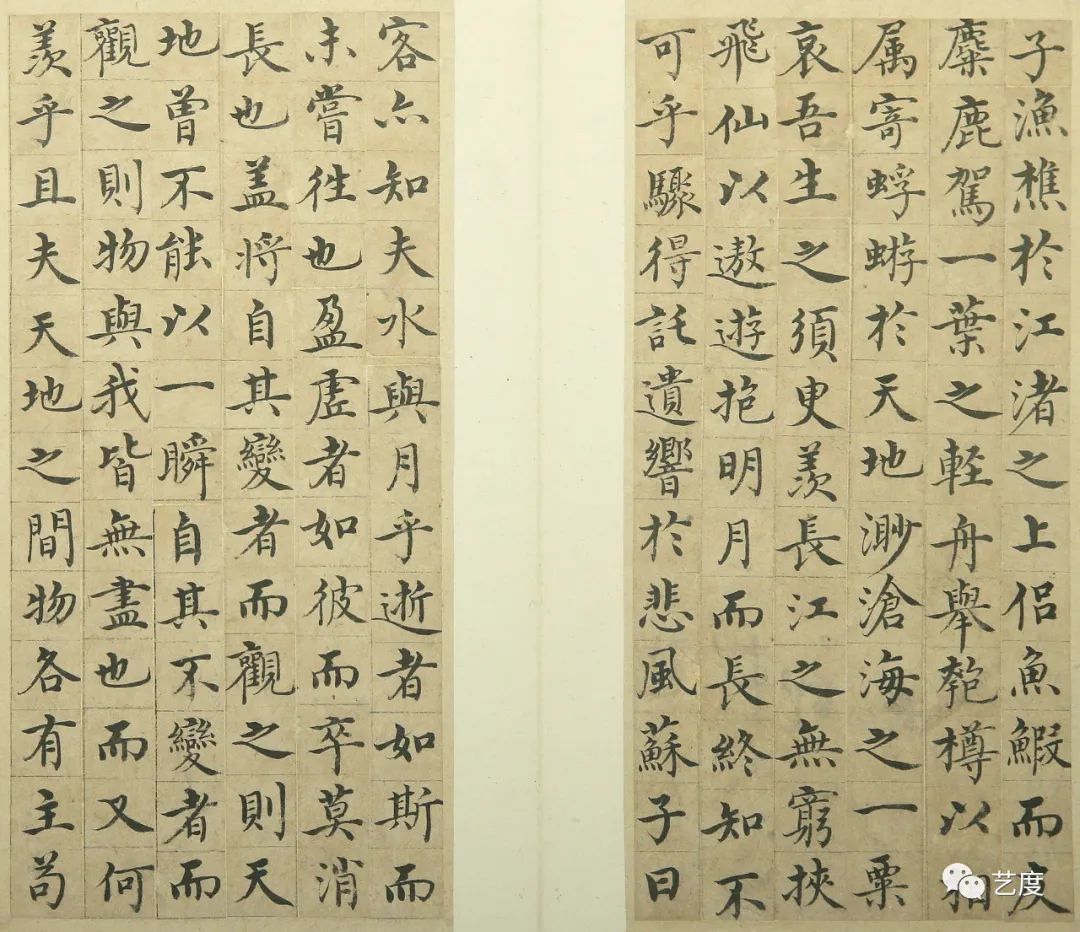 子漁樵於江渚之上侣魚鰕而友
麋鹿駕一葉之軽舟舉匏樽以相
属寄蜉蝣於天地渺滄海之一粟
哀吾生之須臾羨長江之無窮挾
飛仙以遨遊抱明月而長終知不
可乎驟得託遺響於悲風蘇子曰
客亦知夫水與月乎逝者如斯而
未嘗往也盈虚者如彼而卒莫消
長也盖將自其變者而觀之則天
地曾不能以一瞬自其不變者而
觀之則物與我皆無盡也而又何
羨乎且夫天地之間物各有主苟
艺度